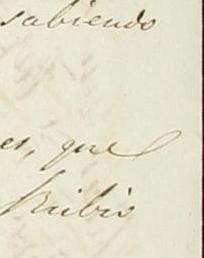 sabiendo
es, que
Rubio